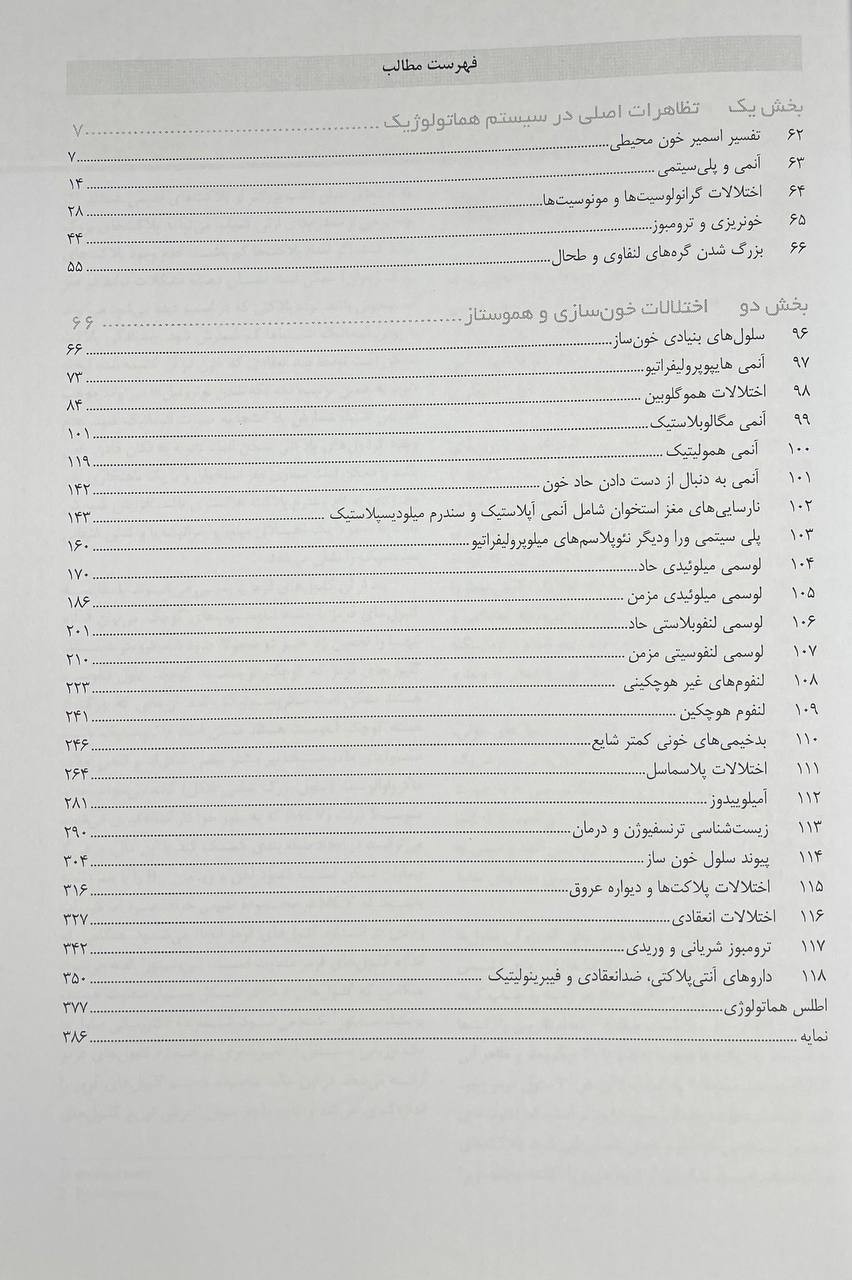 فهرست مطالب
بخش یک تظاهرات اصلی در سیستم هماتولوژیک ........ ۷
۶۲ تفسیر اسمیر خون محیطی ........ ۷
۶۳ آنمی و پلی‌سیتمی ........ ۱۴
۶۴ اختلالات گرانولوسیت‌ها و مونوسیت‌ها ........ ۲۸
۶۵ خونریزی و ترومبوز ........ ۴۴
۶۶ بزرگ شدن گره‌های لنفاوی و طحال ........ ۵۵
بخش دو اختلالات خون‌سازی و هموستاز ........ ۶۶
۹۶ سلول‌های بنیادی خون‌ساز ........ ۶۶
۹۷ آنمی هایپوپرولیفراتیو ........ ۷۳
۹۸ اختلالات هموگلوبین ........ ۸۴
۹۹ آنمی مگالوبلاستیک ........ ۱۰۱
۱۰۰ آنمی همولیتیک ........ ۱۱۹
۱۰۱ آنمی به دنبال از دست دادن حاد خون ........ ۱۴۲
۱۰۲ نارسایی‌های مغز استخوان شامل آنمی آپلاستیک و سندرم میلودیسپلاستیک ........ ۱۴۳
۱۰۳ پلی سیتمی ورا ودیگر نئوپلاسم‌های میلوپرولیفراتیو ........ ۱۶۰
۱۰۴ لوسمی میلوئیدی حاد ........ ۱۷۰
۱۰۵ لوسمی میلوئیدی مزمن ........ ۱۸۶
۱۰۶ لوسمی لنفوبلاستی حاد ........ ۲۰۱
۱۰۷ لوسمی لنفوسیتی مزمن ........ ۲۱۰
۱۰۸ لنفوم‌های غیر هوچکینی ........ ۲۲۳
۱۰۹ لنفوم هوچکین ........ ۲۴۱
۱۱۰ بدخیمی‌های خونی کمتر شایع ........ ۲۴۶
۱۱۱ اختلالات پلاسماسل ........ ۲۶۴
۱۱۲ آمیلوییدوز ........ ۲۸۱
۱۱۳ زیست‌شناسی ترنسفیوژن و درمان ........ ۲۹۰
۱۱۴ پیوند سلول خون ساز ........ ۳۰۴
۱۱۵ اختلالات پلاکت‌ها و دیواره عروق ........ ۳۱۶
۱۱۶ اختلالات انعقادی ........ ۳۲۷
۱۱۷ ترومبوز شریانی و وریدی ........ ۳۴۲
۱۱۸ داروهای آنتی‌پلاکتی، ضدانعقادی و فیبرینولیتیک ........ ۳۵۰
اطلس هماتولوژی ........ ۳۷۷
نمایه ........ ۳۸۶